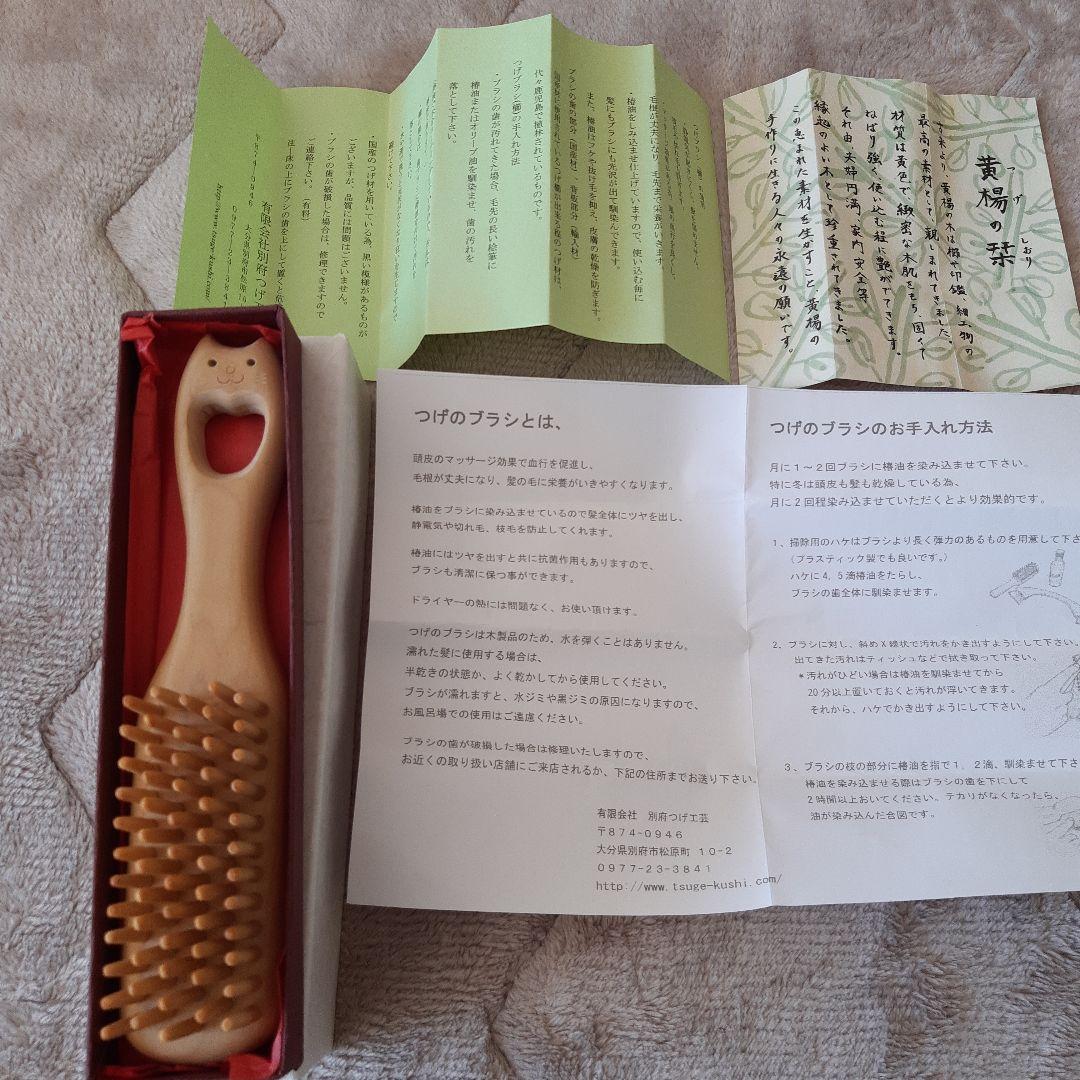 つげブラシ(櫛)の手入れ方法
・ブラシの歯が汚れてきた場合、毛先の長い絵筆に
椿油またはオリーブ油を馴染ませ、歯の汚れを
落として下さい。
毛根が丈夫になり、毛先まで栄養がいきます。
・椿油をしみ込ませ仕上げていますので、使い込む毎に
髪にもブラシにも光沢が出て馴染んできます。
また、椿油はフケや抜け毛を抑え、皮膚の乾燥を防ぎます。
ブラシの歯の部分(国産材)、背板部分(輸入材)
代々鹿児島で植林されているものです。
・国産のつげ材を用いている為、黒い模様があるものが
ございますが、品質には問題はございません。
・ブラシの歯が破損した場合は、修理できますので
ご連絡下さい。(有料)
注-床の上にブラシの歯を上にして置くと危
有限会社別府つげ
http://www.tsuge-kushi.com/
黄楊の栞
つげ
しおり
古来より、黄楊の木は櫛や印鑑、細工物の
最高の素材として、親しまれてきました。
材質は黄色で緻密な木肌をもち、固くて
ねばり強く、使い込む程に艶がでてきます。
それ由、夫婦円満、家内安全等
縁起のよい木として珍重されてきました。
この恵まれた素材を生かすこと、黄楊の
手作りに生きる人々の永遠の願いです。
つげのブラシとは、
頭皮のマッサージ効果で血行を促進し、
毛根が丈夫になり、髪の毛に栄養がいきやすくなります。
椿油をブラシに染み込ませているので髪全体にツヤを出し、
静電気や切れ毛、枝毛を防止してくれます。
椿油にはツヤを出すと共に抗菌作用もありますので、
ブラシも清潔に保つ事ができます。
ドライヤーの熱には問題なく、お使い頂けます。
つげのブラシは木製品のため、水を弾くことはありません。
濡れた髪に使用する場合は、
半乾きの状態か、よく乾かしてから使用してください。
ブラシが濡れますと、水ジミや黒ジミの原因になりますので、
お風呂場での使用はご遠慮ください。
ブラシの歯が破損した場合は修理いたしますので、
お近くの取り扱い店舗にご来店されるか、下記の住所までお送り下さい。
有限会社 別府つげ工芸
〒874-0946
大分県別府市松原町 10-2
0977-23-3841
http://www.tsuge-kushi.com/
つげのブラシのお手入れ方法
月に1~2回ブラシに椿油を染み込ませて下さい。
特に冬は頭皮も髪も乾燥している為、
月に2回程染み込ませていただくとより効果的です。
1、掃除用のハケはブラシより長く弾力のあるものを用意して下さ
(プラスティック製でも良いです。)
ハケに4,5滴椿油をたらし、
ブラシの歯全体に馴染ませます。
2、ブラシに対し、斜めX線状で汚れをかき出すようにして下さい。
出てきた汚れはティッシュなどで拭き取って下さい。
*汚れがひどい場合は椿油を馴染ませてから
20分以上置いておくと汚れが浮いてきます。
それから、ハケでかき出すようにして下さい。
3、ブラシの枝の部分に椿油を指で1,2滴、馴染ませて下さ
椿油を染み込ませる際はブラシの歯を下にして
2時間以上おいてください。テカリがなくなったら、
油が染み込んだ合図です。